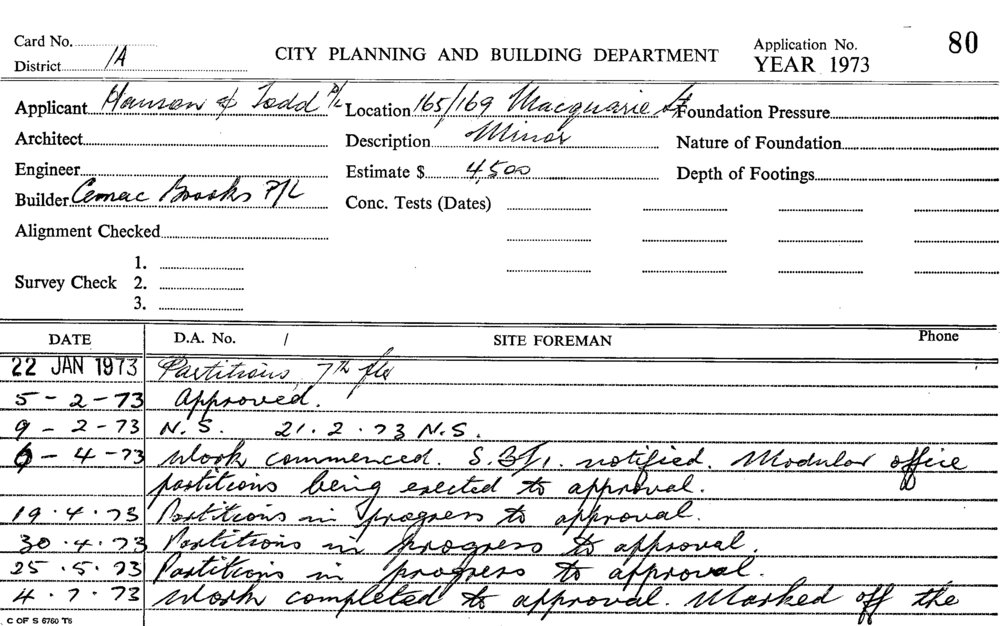 Card No.
District 1A
CITY PLANNING AND BUILDING DEPARTMENT
Application No. 80
YEAR 1973
Applicant Hanson & Todd P/L Location 165/169 Macquarie St Foundation Pressure
Architect Description Minor Nature of Foundation
Engineer Estimate $ 4,500 Depth of Footings
Builder Cemac Brooks P/L Conc. Tests (Dates)
Alignment Checked
1.
Survey Check 2.
3.
DATE D.A. No. / SITE FOREMAN Phone
22 JAN 1973 Partitions, 7th flr
5-2-73 Approved.
9-2-73 N.S. 21.2.73 N.S.
6-4-73 Work commenced. S.B.I. notified. Modular office
partitions being erected to approval.
19.4.73 Partitions in progress to approval.
30.4.73 Partitions in progress to approval.
25.5.73 Partitions in progress to approval.
4.7.73 Work completed to approval. Marked off the
C OF S 6760 T6